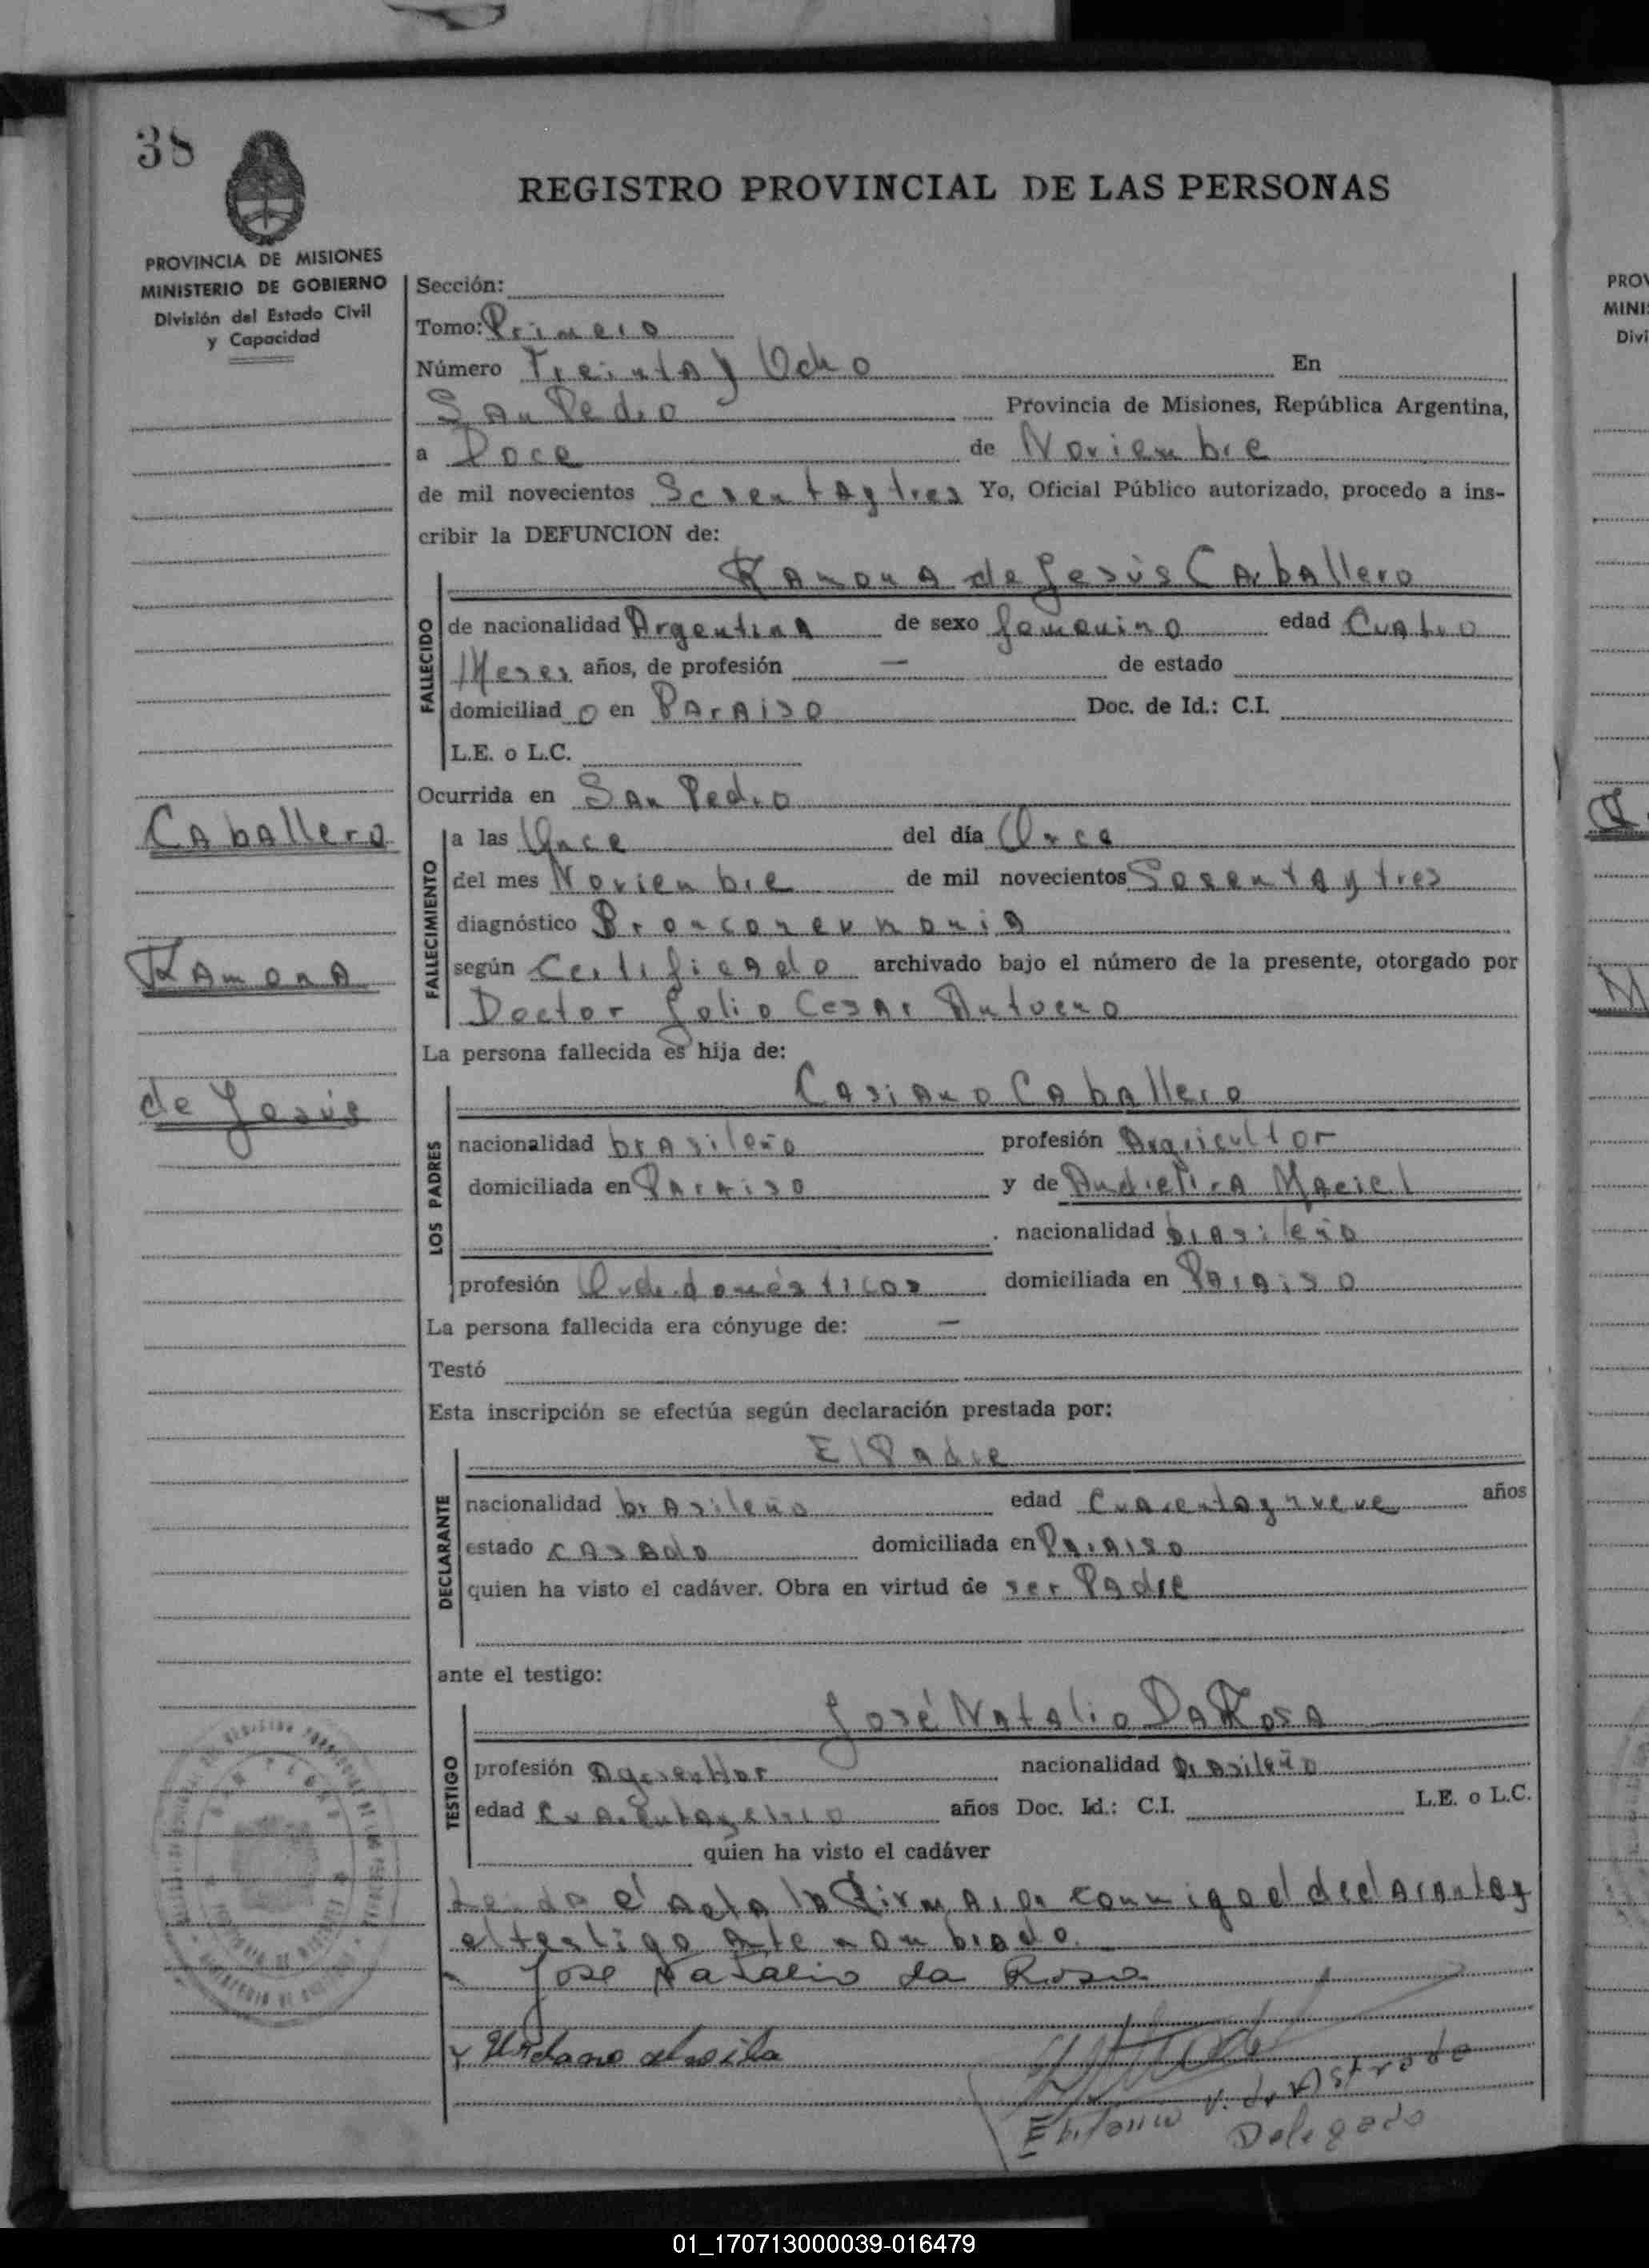 38
REGISTRO PROVINCIAL DE LAS PERSONAS
PROVINCIA DE MISIONES
MINISTERIO DE GOBIERNO
División del Estado Civil
y Capacidad
Sección:
Tomo: Primero
Número Treinta y Ocho En
San Pedro Provincia de Misiones, República Argentina,
a Doce de Noviembre
de mil novecientos Sesenta y tres Yo, Oficial Público autorizado, procedo a ins-
cribir la DEFUNCION de:
Ramona de Jesús Caballero
FALLECIDO
de nacionalidad Argentina de sexo femenino edad Cuatro
Meses años, de profesión — de estado
domiciliad o en Paraiso Doc. de Id.: C.I.
L.E. o L.C.
Ocurrida en San Pedro
Caballero
Ramona
de Jesús
FALLECIMIENTO
a las Once del día Once
del mes Noviembre de mil novecientos Sesenta y tres
diagnóstico Bronconeumonia
según Certificado archivado bajo el número de la presente, otorgado por
Doctor Julio Cesar
La persona fallecida es hija de:
Casiano Caballero
LOS PADRES
nacionalidad brasileño profesión
domiciliada en Paraiso y de Maciel
nacionalidad brasileño
profesión domésticos domiciliada en Paraiso
La persona fallecida era cónyuge de: —
Testó
Esta inscripción se efectúa según declaración prestada por:
El Padre
DECLARANTE
nacionalidad brasileño edad Cuarenta y nueve años
estado casado domiciliada en Paraiso
quien ha visto el cadáver. Obra en virtud de ser Padre
ante el testigo:
José Natalio Da Rosa
TESTIGO
profesión nacionalidad Brasileño
edad años Doc. Id.: C.I. L.E. o L.C.
quien ha visto el cadáver
el acta la conmigo el declarante y
el testigo
Jose Natalio da Rosa
Delegado
PROV
MINI
Divi
01_170713000039-016479